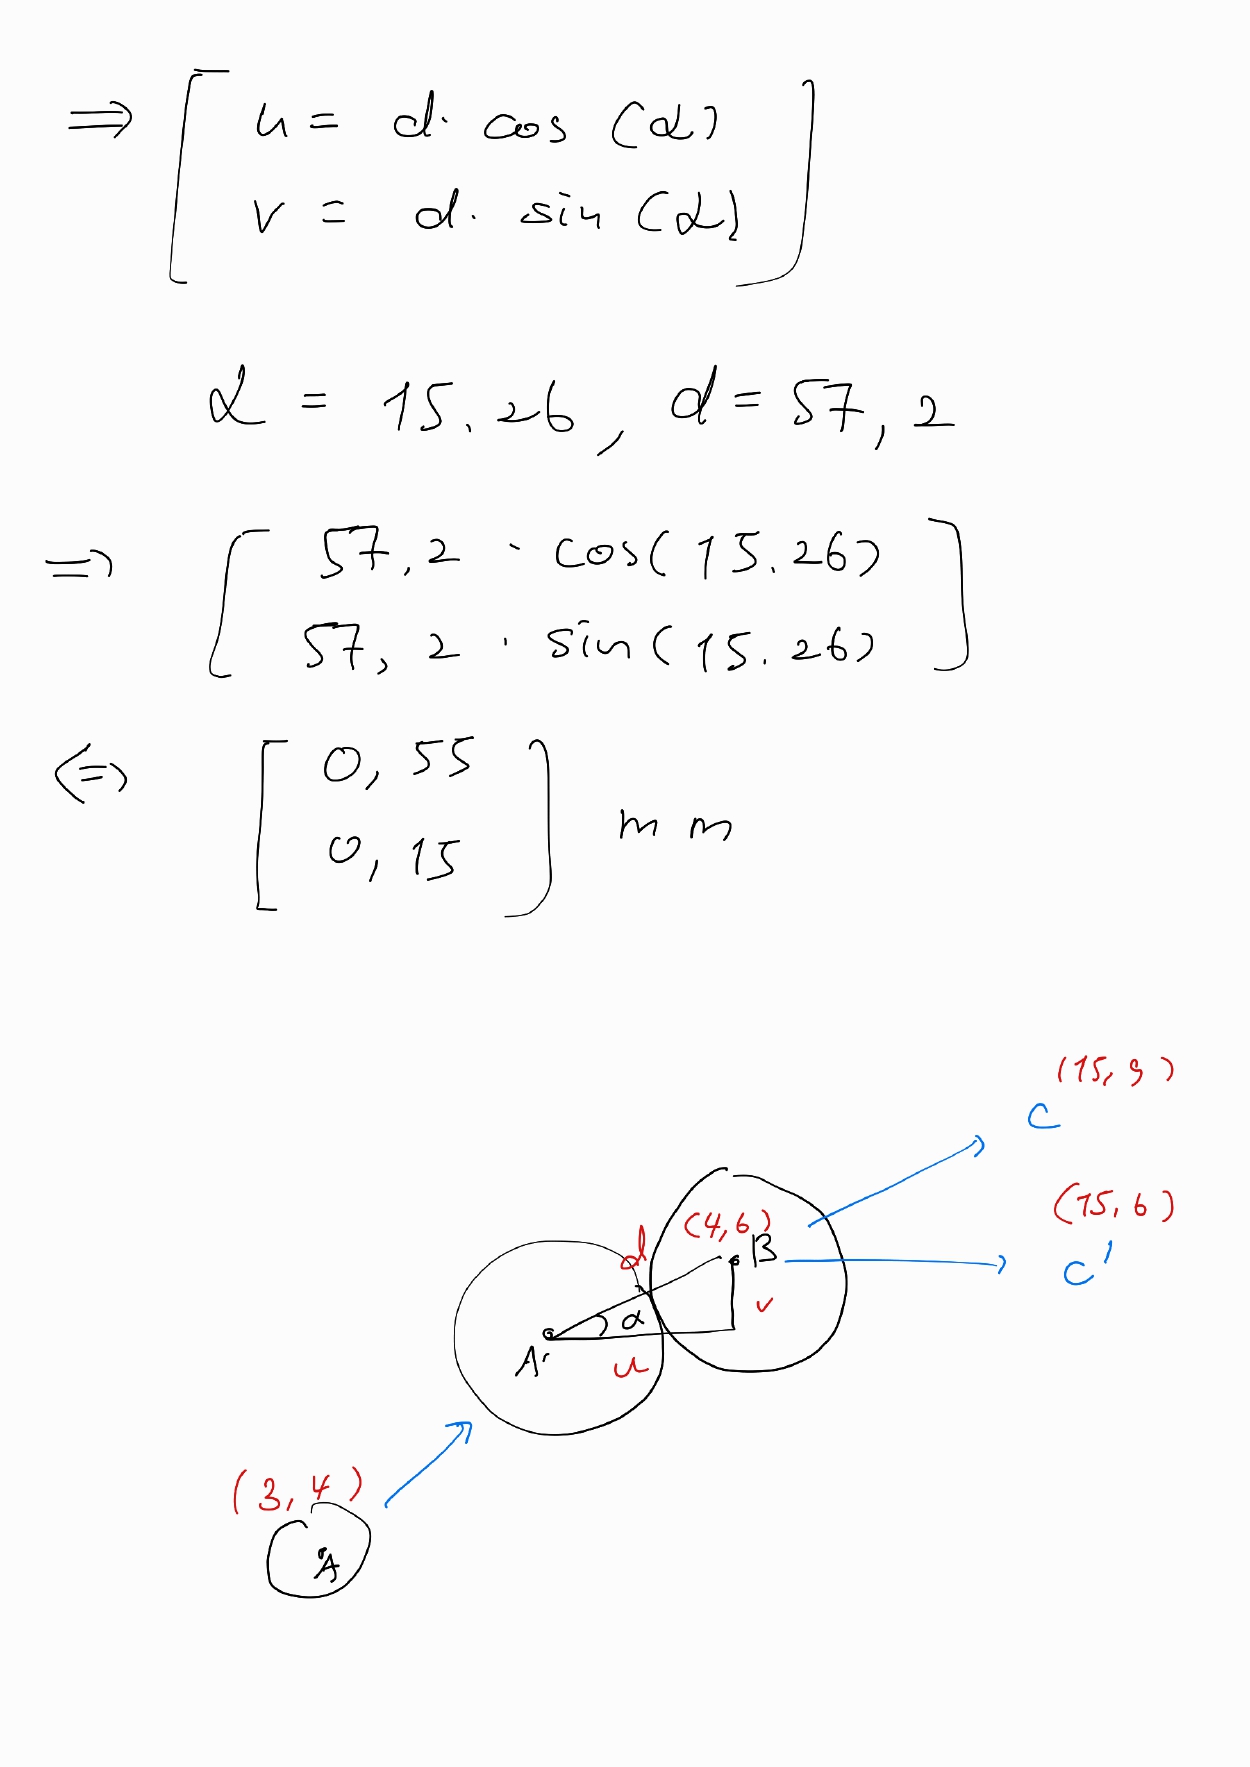 ⇒ [ u = d · cos (α)
v = d · sin (α) ]
α = 15.26, d = 57,2
⇒ [ 57,2 · cos(15.26)
57,2 · sin(15.26) ]
⇔ [ 0,55
0,15 ] mm
(15,9)
C
(15,6)
C'
(4,6)
B
d
α
v
A'
u
(3,4)
A